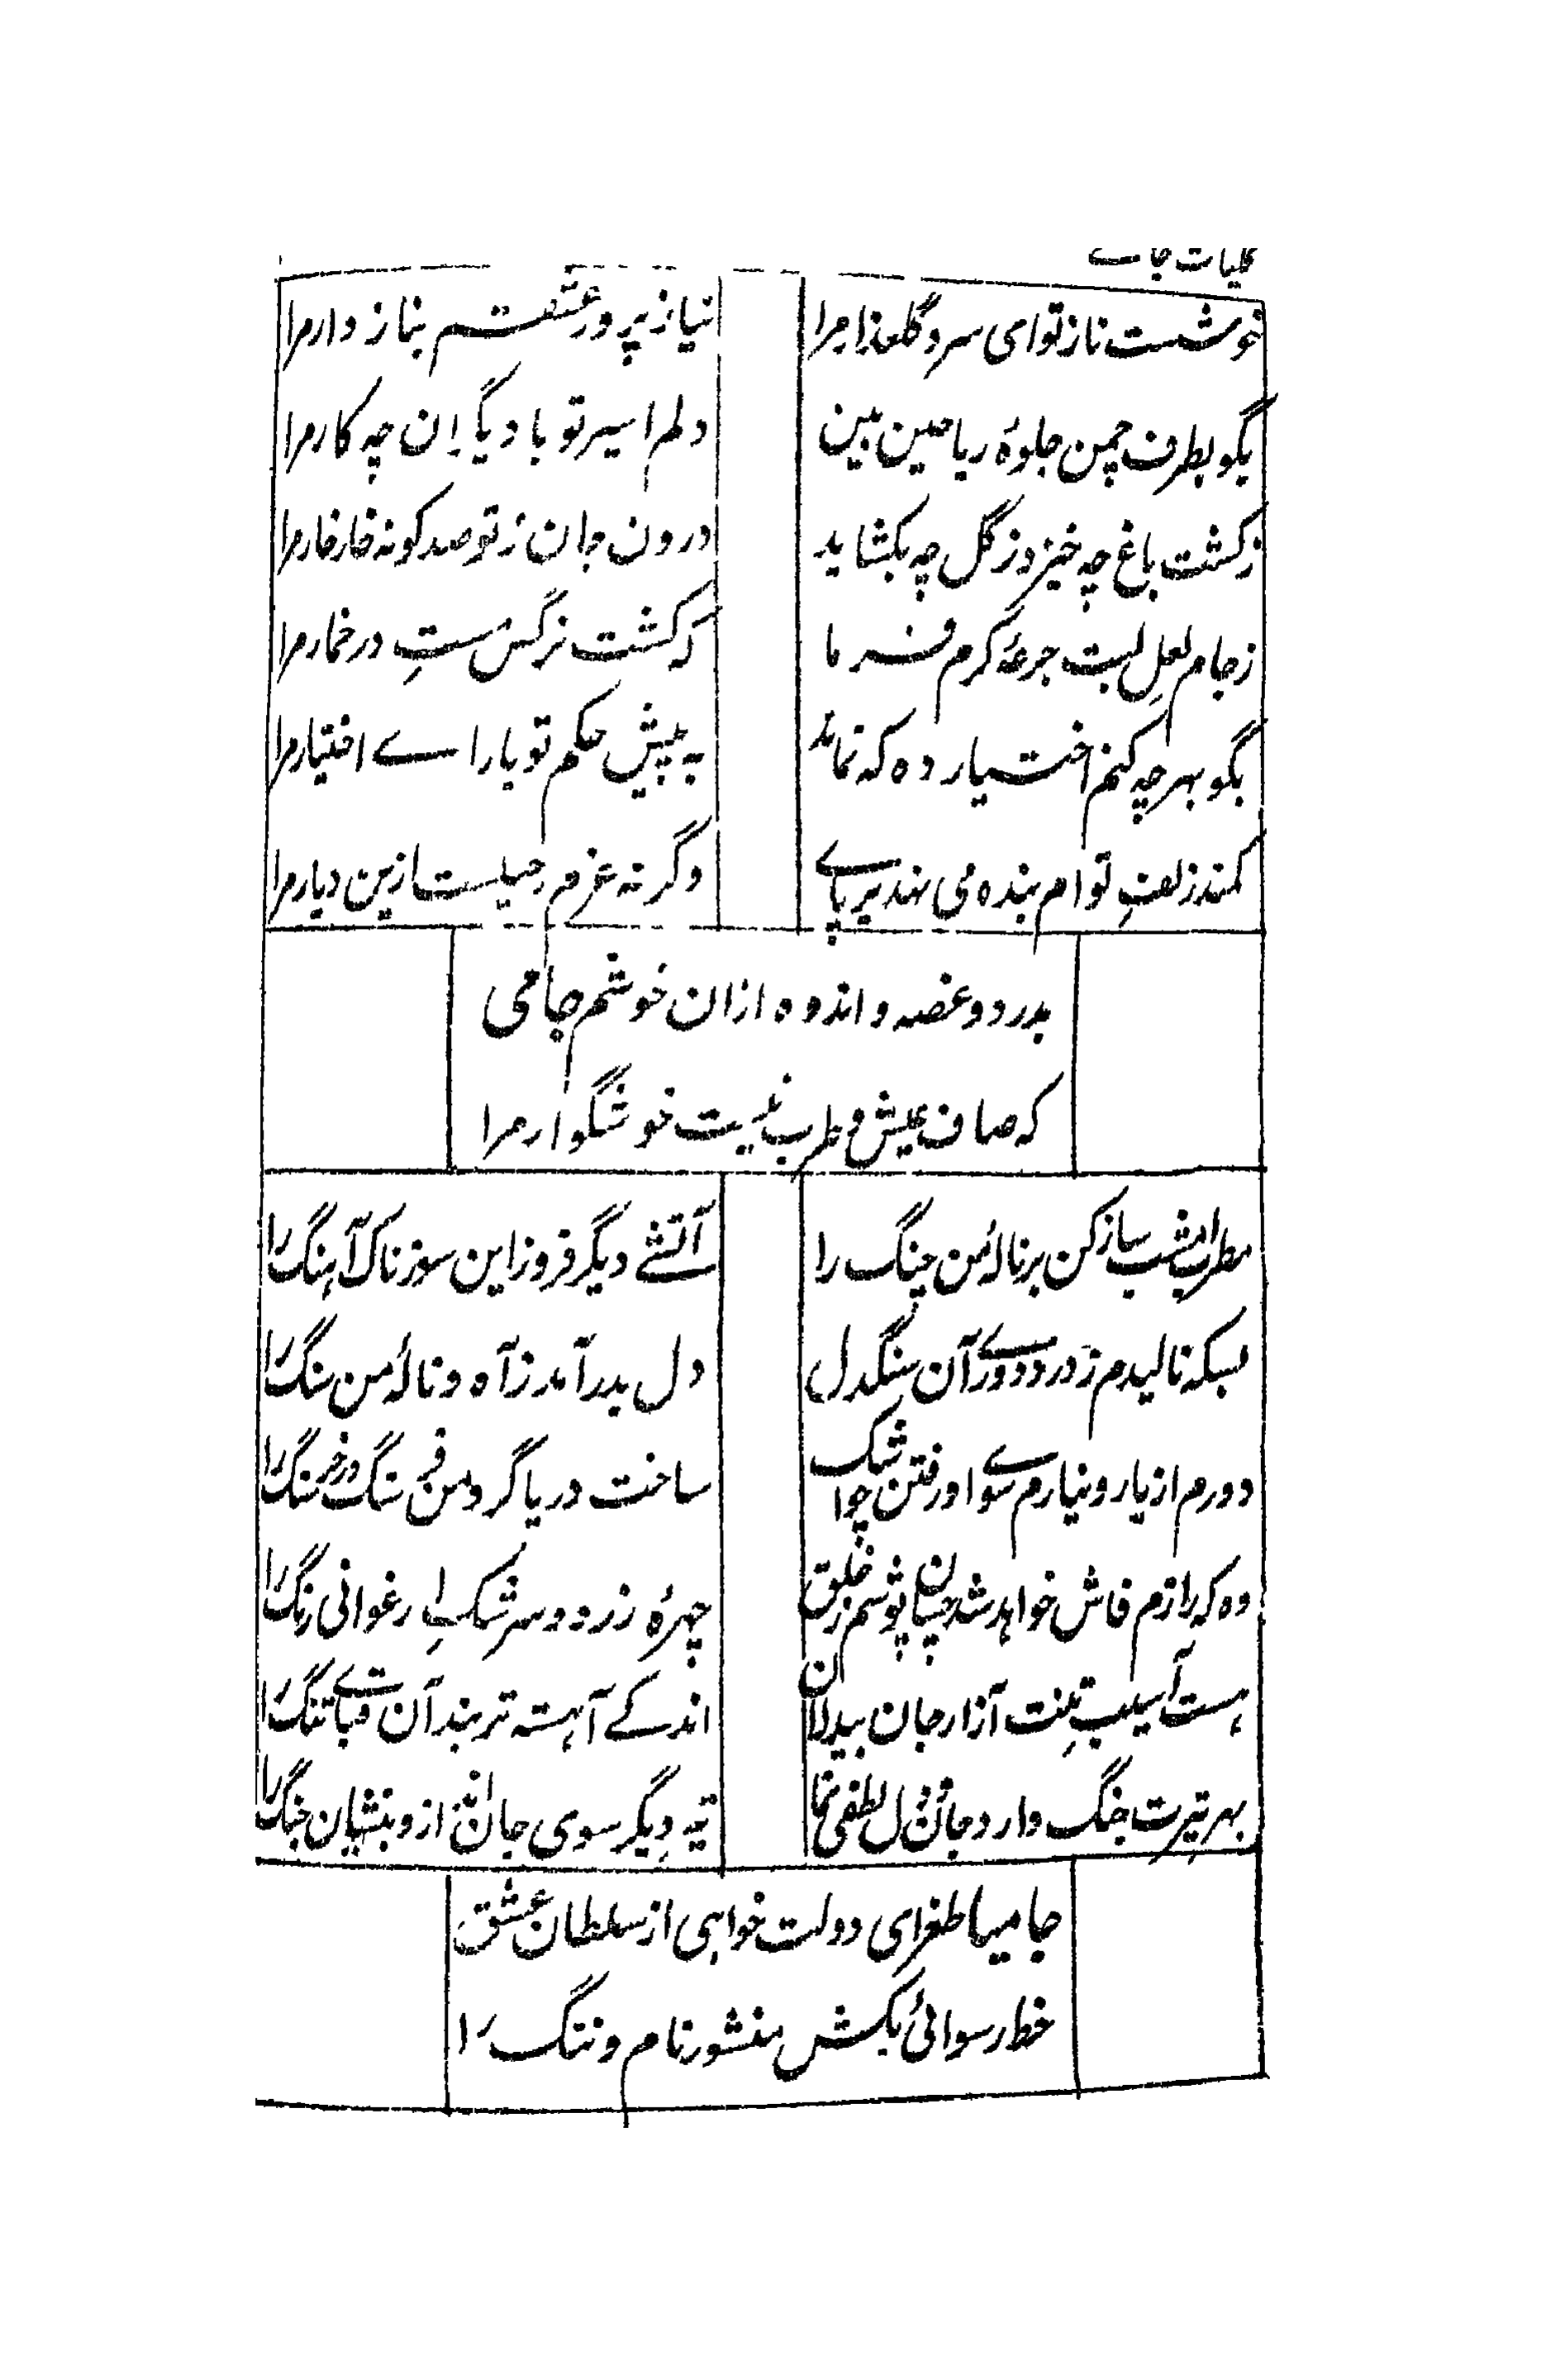 کلیات جامے
خوشست ناز تو ای سرو گلعذار مرا
نیاز پرور عشقت م بناز دار مرا
بگو بطرف چمن جلوهٔ ریاحین بین
دلم اسیر تو با دیگران چه کار مرا
ز کشت باغ چه خیزد ز گل چه بکشاید
درون جان ز تو صد گونه خار خار مرا
ز جام لعلِ لبت جرعهٔ کرم فرما
که کشت نرگس مستِ در خمار مرا
بگو بهر چه کنم اختیار ده که نماند
به پیش حکم تو یارا ے اختیار مرا
کمند زلفِ تو ام بنده می نهد بر پاے
وگرنه عزم رحیلست ازین دیار مرا
بدرد و غصه و اندوه ازان خوشم جامی
که صاف عیش و طرب نیست خوشگوار مرا
مطربا امشب ساز کن بر نالهٔ من چنگ را
آتشے دیگر فروز این سوزناک آهنگ را
بسکه نالیدم ز درد دورے آن سنگدل
دل بدرد آمد ز آه و نالهٔ من سنگ را
دورم از یار و نیارم سوے او رفتن چو اشک
ساخت دریا گرد من فرسنگ در فرسنگ را
وه که رازم فاش خواهد شد چسان پوشم ز خلق
چهرهٔ زرد و سرشکِ ارغوانی رنگ را
هست آسیب تنت آزار جان بیدلان
اندکے آهسته تر بند آن قباے تنگ را
بهر تیرت جنگ دارد جان و دل لطفی نما
تیر دیگر سوی جان انداز و بنشان جنگ را
جامیا طغرای دولت خواهی از سلطان عشق
خط رسوائیٔ بکش منشور نام و ننگ را